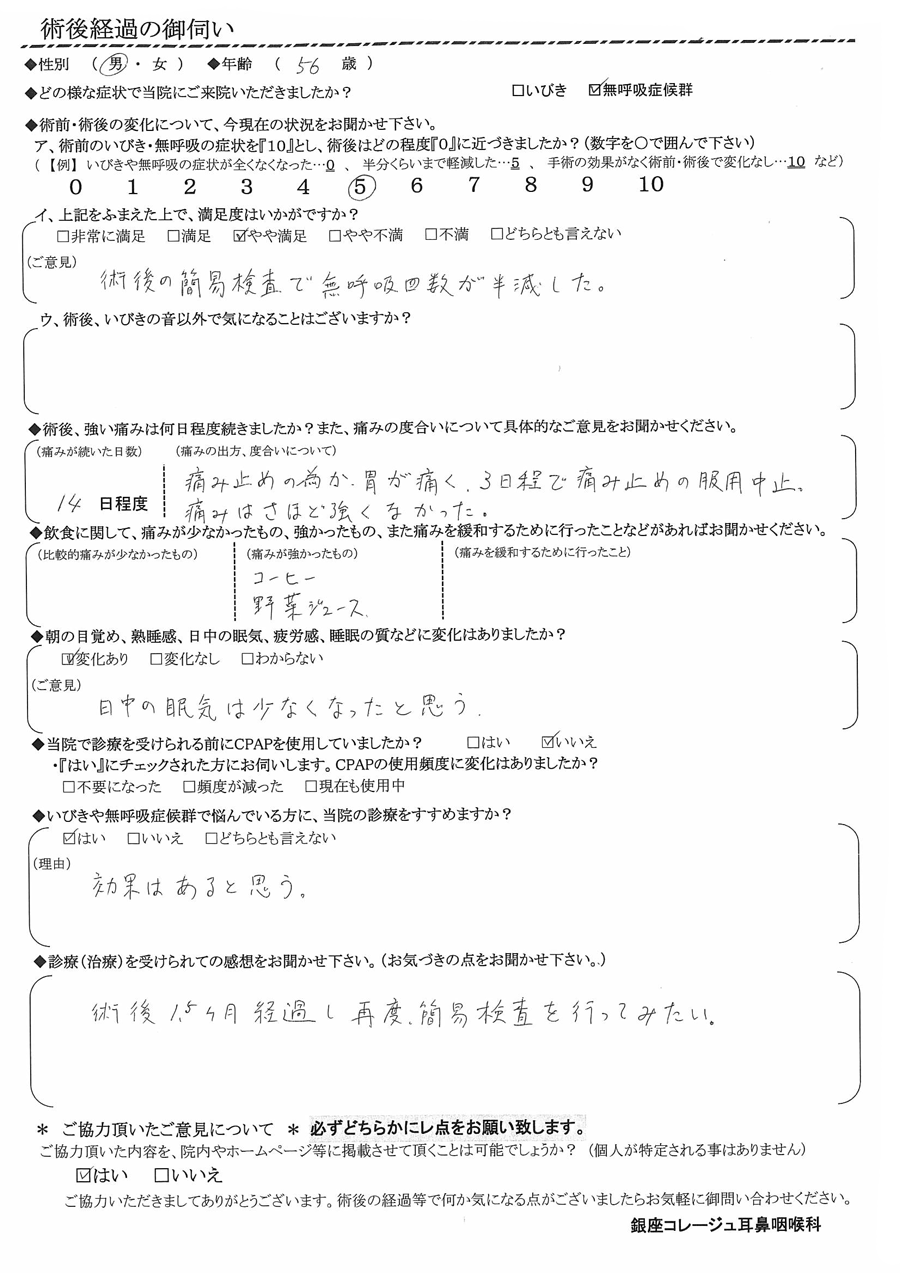 術後経過の御伺い
◆性別 （ 男 ・ 女 ） ◆年齢 （ 56 歳 ）
◆どの様な症状で当院にご来院いただきましたか？ □いびき ☑無呼吸症候群
◆術前・術後の変化について、今現在の状況をお聞かせ下さい。
ア、術前のいびき・無呼吸の症状を『10』とし、術後はどの程度『0』に近づきましたか？(数字を〇で囲んで下さい)
（【例】いびきや無呼吸の症状が全くなくなった…0 、 半分くらいまで軽減した…5 、 手術の効果がなく術前・術後で変化なし…10 など）
0 1 2 3 4 5 6 7 8 9 10
イ、上記をふまえた上で、満足度はいかがですか？
□非常に満足 □満足 ☑やや満足 □やや不満 □不満 □どちらとも言えない
(ご意見)
術後の簡易検査で無呼吸回数が半減した。
ウ、術後、いびきの音以外で気になることはございますか？
◆術後、強い痛みは何日程度続きましたか？また、痛みの度合いについて具体的なご意見をお聞かせください。
(痛みが続いた日数) (痛みの出方、度合いについて)
痛み止めの為か、胃が痛く、3日程で痛み止めの服用中止。
14 日程度 痛みはさほど強くなかった。
◆飲食に関して、痛みが少なかったもの、強かったもの、また痛みを緩和するために行ったことなどがあればお聞かせください。
(比較的痛みが少なかったもの) (痛みが強かったもの) (痛みを緩和するために行ったこと)
コーヒー
野菜ジュース
◆朝の目覚め、熟睡感、日中の眠気、疲労感、睡眠の質などに変化はありましたか？
☑変化あり □変化なし □わからない
(ご意見)
日中の眠気は少なくなったと思う.
◆当院で診療を受けられる前にCPAPを使用していましたか？ □はい ☑いいえ
・『はい』にチェックされた方にお伺いします。CPAPの使用頻度に変化はありましたか？
□不要になった □頻度が減った □現在も使用中
◆いびきや無呼吸症候群で悩んでいる方に、当院の診療をすすめますか？
☑はい □いいえ □どちらとも言えない
(理由)
効果はあると思う。
◆診療(治療)を受けられての感想をお聞かせ下さい。(お気づきの点をお聞かせ下さい。)
術後1.5ヶ月経過し再度、簡易検査を行ってみたい。
＊ ご協力頂いたご意見について ＊ 必ずどちらかにレ点をお願い致します。
ご協力頂いた内容を、院内やホームページ等に掲載させて頂くことは可能でしょうか？（個人が特定される事はありません）
☑はい □いいえ
ご協力いただきましてありがとうございます。術後の経過等で何か気になる点がございましたらお気軽に御問い合わせください。
銀座コレージュ耳鼻咽喉科